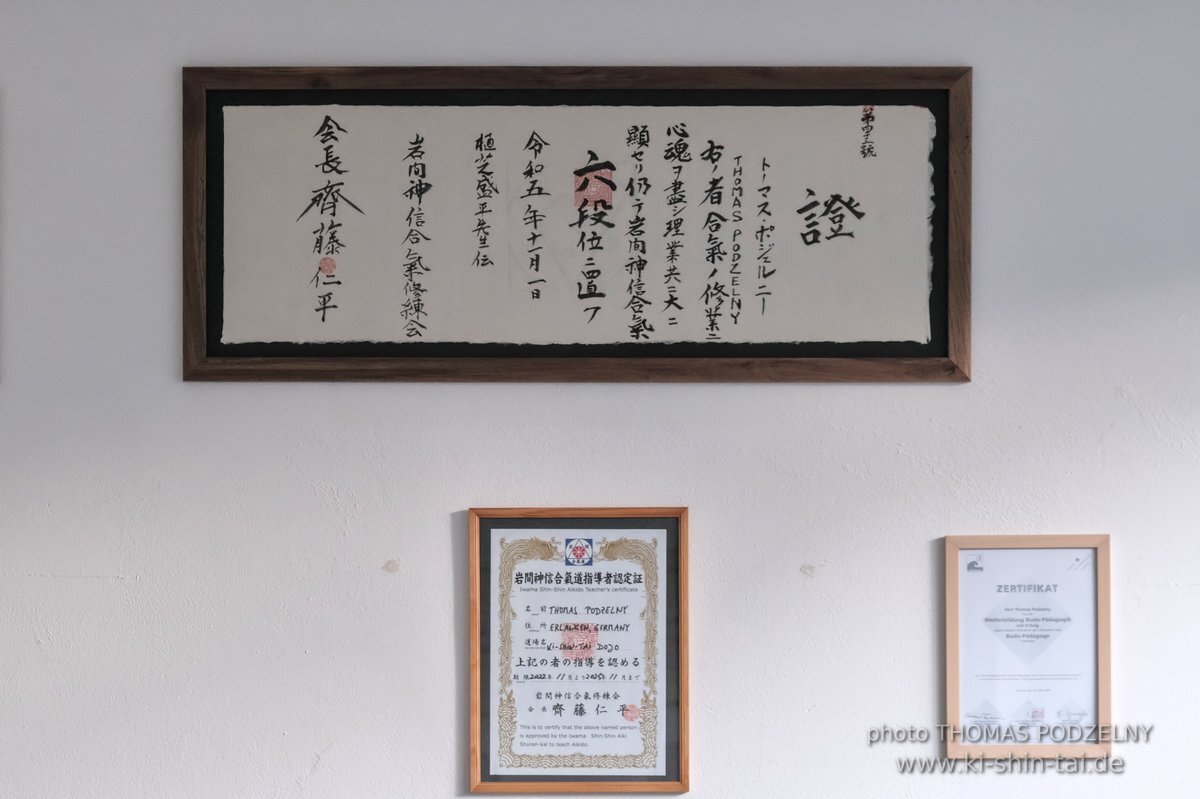 第四三號
證
トーマス・ポジェルニー
THOMAS PODZELNY
右ノ者合氣ノ修業ニ
心魂ヲ盡シ理業共ニ大ニ
顯セリ仍テ岩間神信合氣
六段位ニ置ク
令和五年十一月一日
植芝盛平先生伝
岩間神信合氣修練会
会長 齊藤仁平
岩間神信合氣道指導者認定証
Iwama Shin-Shin Aikido Teacher's certificate
名前 THOMAS PODZELNY
住所 ERLANGEN, GERMANY
道場名 KI-SHIN-TAI DOJO
上記の者の指導を認める
期限2022年11月より2025年11月まで
岩間神信合氣修練会
会長 齊藤仁平
This is to certify that the above named person
is approved by the Iwama Shin-Shin Aiki
Shuren-kai to teach Aikido.
ZERTIFIKAT
Thomas Podzelny
Weiterbildung Budo-Pädagogik
mit Erfolg
Budo-Pädagoge
photo THOMAS PODZELNY
www.ki-shin-tai.de